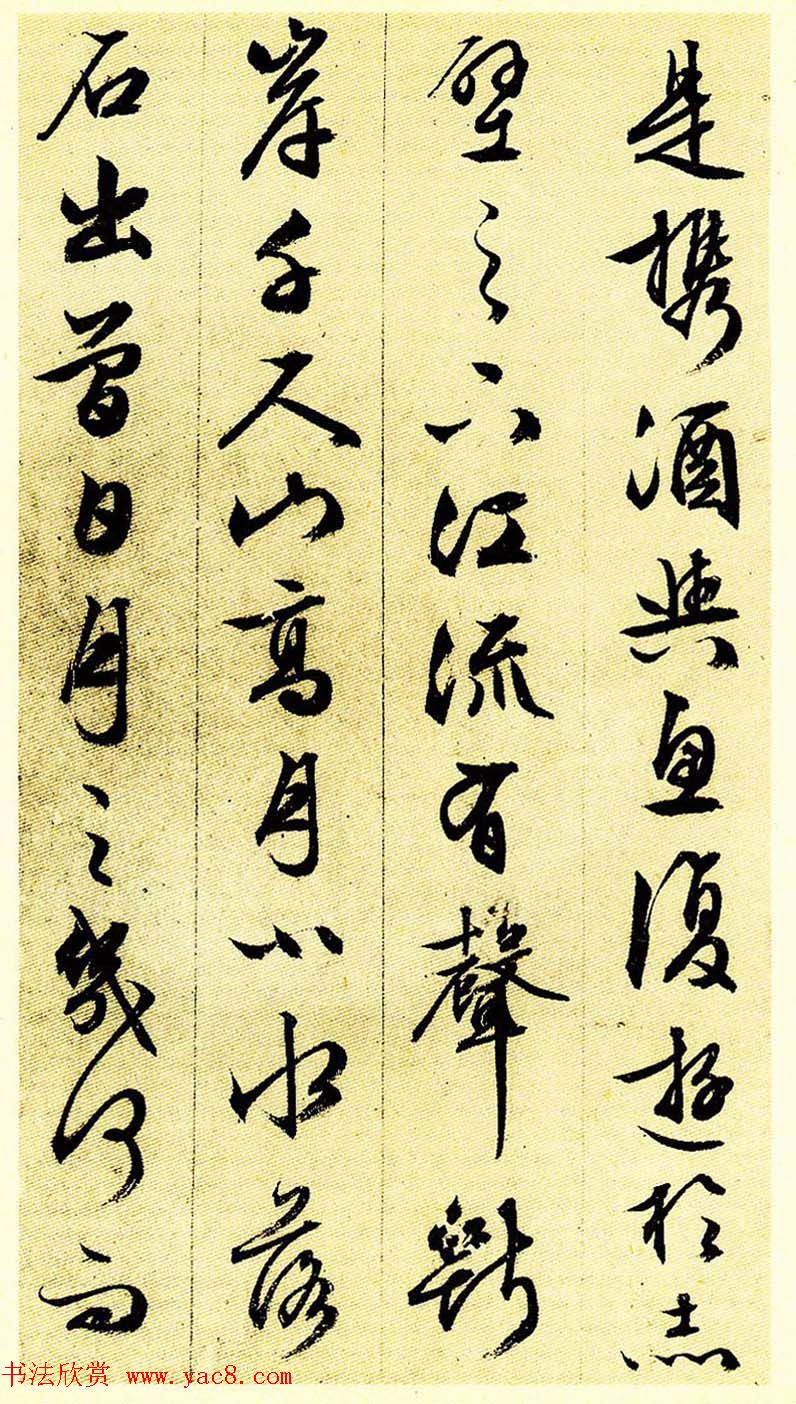 是携酒與魚復遊於赤
壁之下江流有聲斷
岸千尺山高月小水落
石出曾日月之幾何而
书法欣赏 www.yac8.com